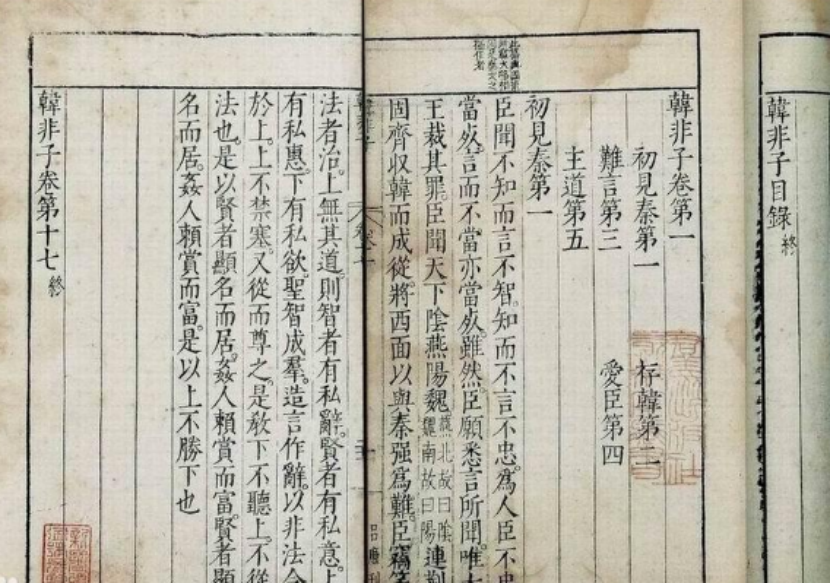 韓非子目錄 終
韓非子卷第一
初見秦第一 存韓第二
難言第三 愛臣第四
主道第五
初見秦第一
臣聞不知而言不智。知而不言不忠。爲人臣不忠
當死。言而不當亦當死。雖然。臣願悉言所聞。唯
王裁其罪。臣聞天下陰燕陽魏。燕北故曰陰魏南故曰陽連荆
固齊収韓而成從。將西面以與秦强爲難。臣竊
韓非子
法者治。上無其道。則智者有私辭。賢者有私意。上
有私惠。下有私欲。聖智成羣。造言作辭。以非法令
於上。上不禁塞。又從而尊之。是敎下不聽上。不從
法也。是以賢者顯名而居。姦人賴賞而富。賢者顯
名而居。姦人賴賞而富。是以上不勝下也
韓非子卷第十七 終